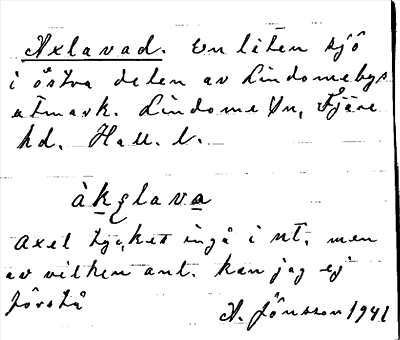 Axlavad. En liten sjö
i östra delen av Lindomebys
utmark. Lindome sn, Fjäre
hd. Hall. l.
àkslava
Axel tyckes ingå i nt, men
av vilken anl. kan jag ej
förstå
A. Jönsson 1941